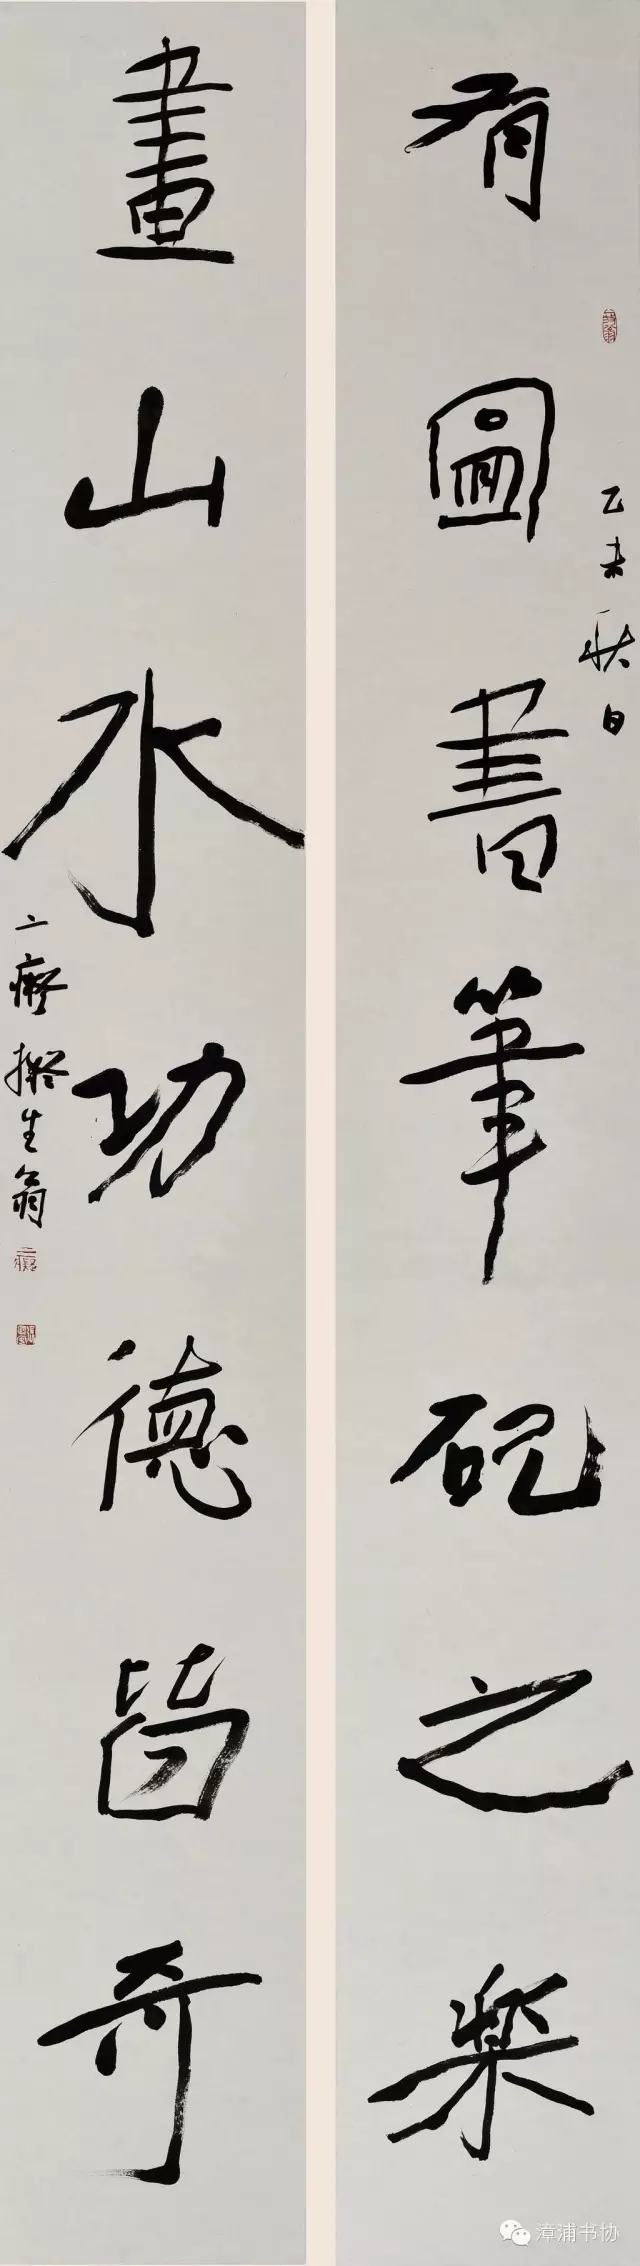 有圖書筆硯之樂
乙未秋日
畫山水功德皆奇
二癡撫生翁
漳浦书协